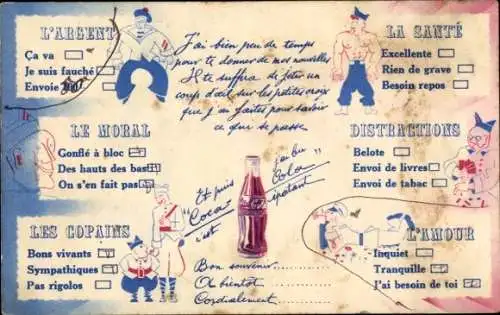 L'ARGENT
Ça va
Je suis fauché
Envoie
J'ai bien peu de temps
pour te donner de mes nouvelles
Il te suffira de jeter un
coup d'œil sur les petites croix
que j'ai faites pour savoir
ce que se passe
LA SANTÉ
Excellente
Rien de grave
Besoin repos
LE MORAL
Gonflé à bloc
Des hauts des bas
On s'en fait pas
Et puis j'ai bu
"Coca Cola"
c'est épatant
DISTRACTIONS
Belote
Envoi de livres
Envoi de tabac
LES COPAINS
Bons vivants
Sympathiques
Pas rigolos
Bon souvenir
A bientôt
Cordialement
L'AMOUR
Inquiet
Tranquille
J'ai besoin de toi